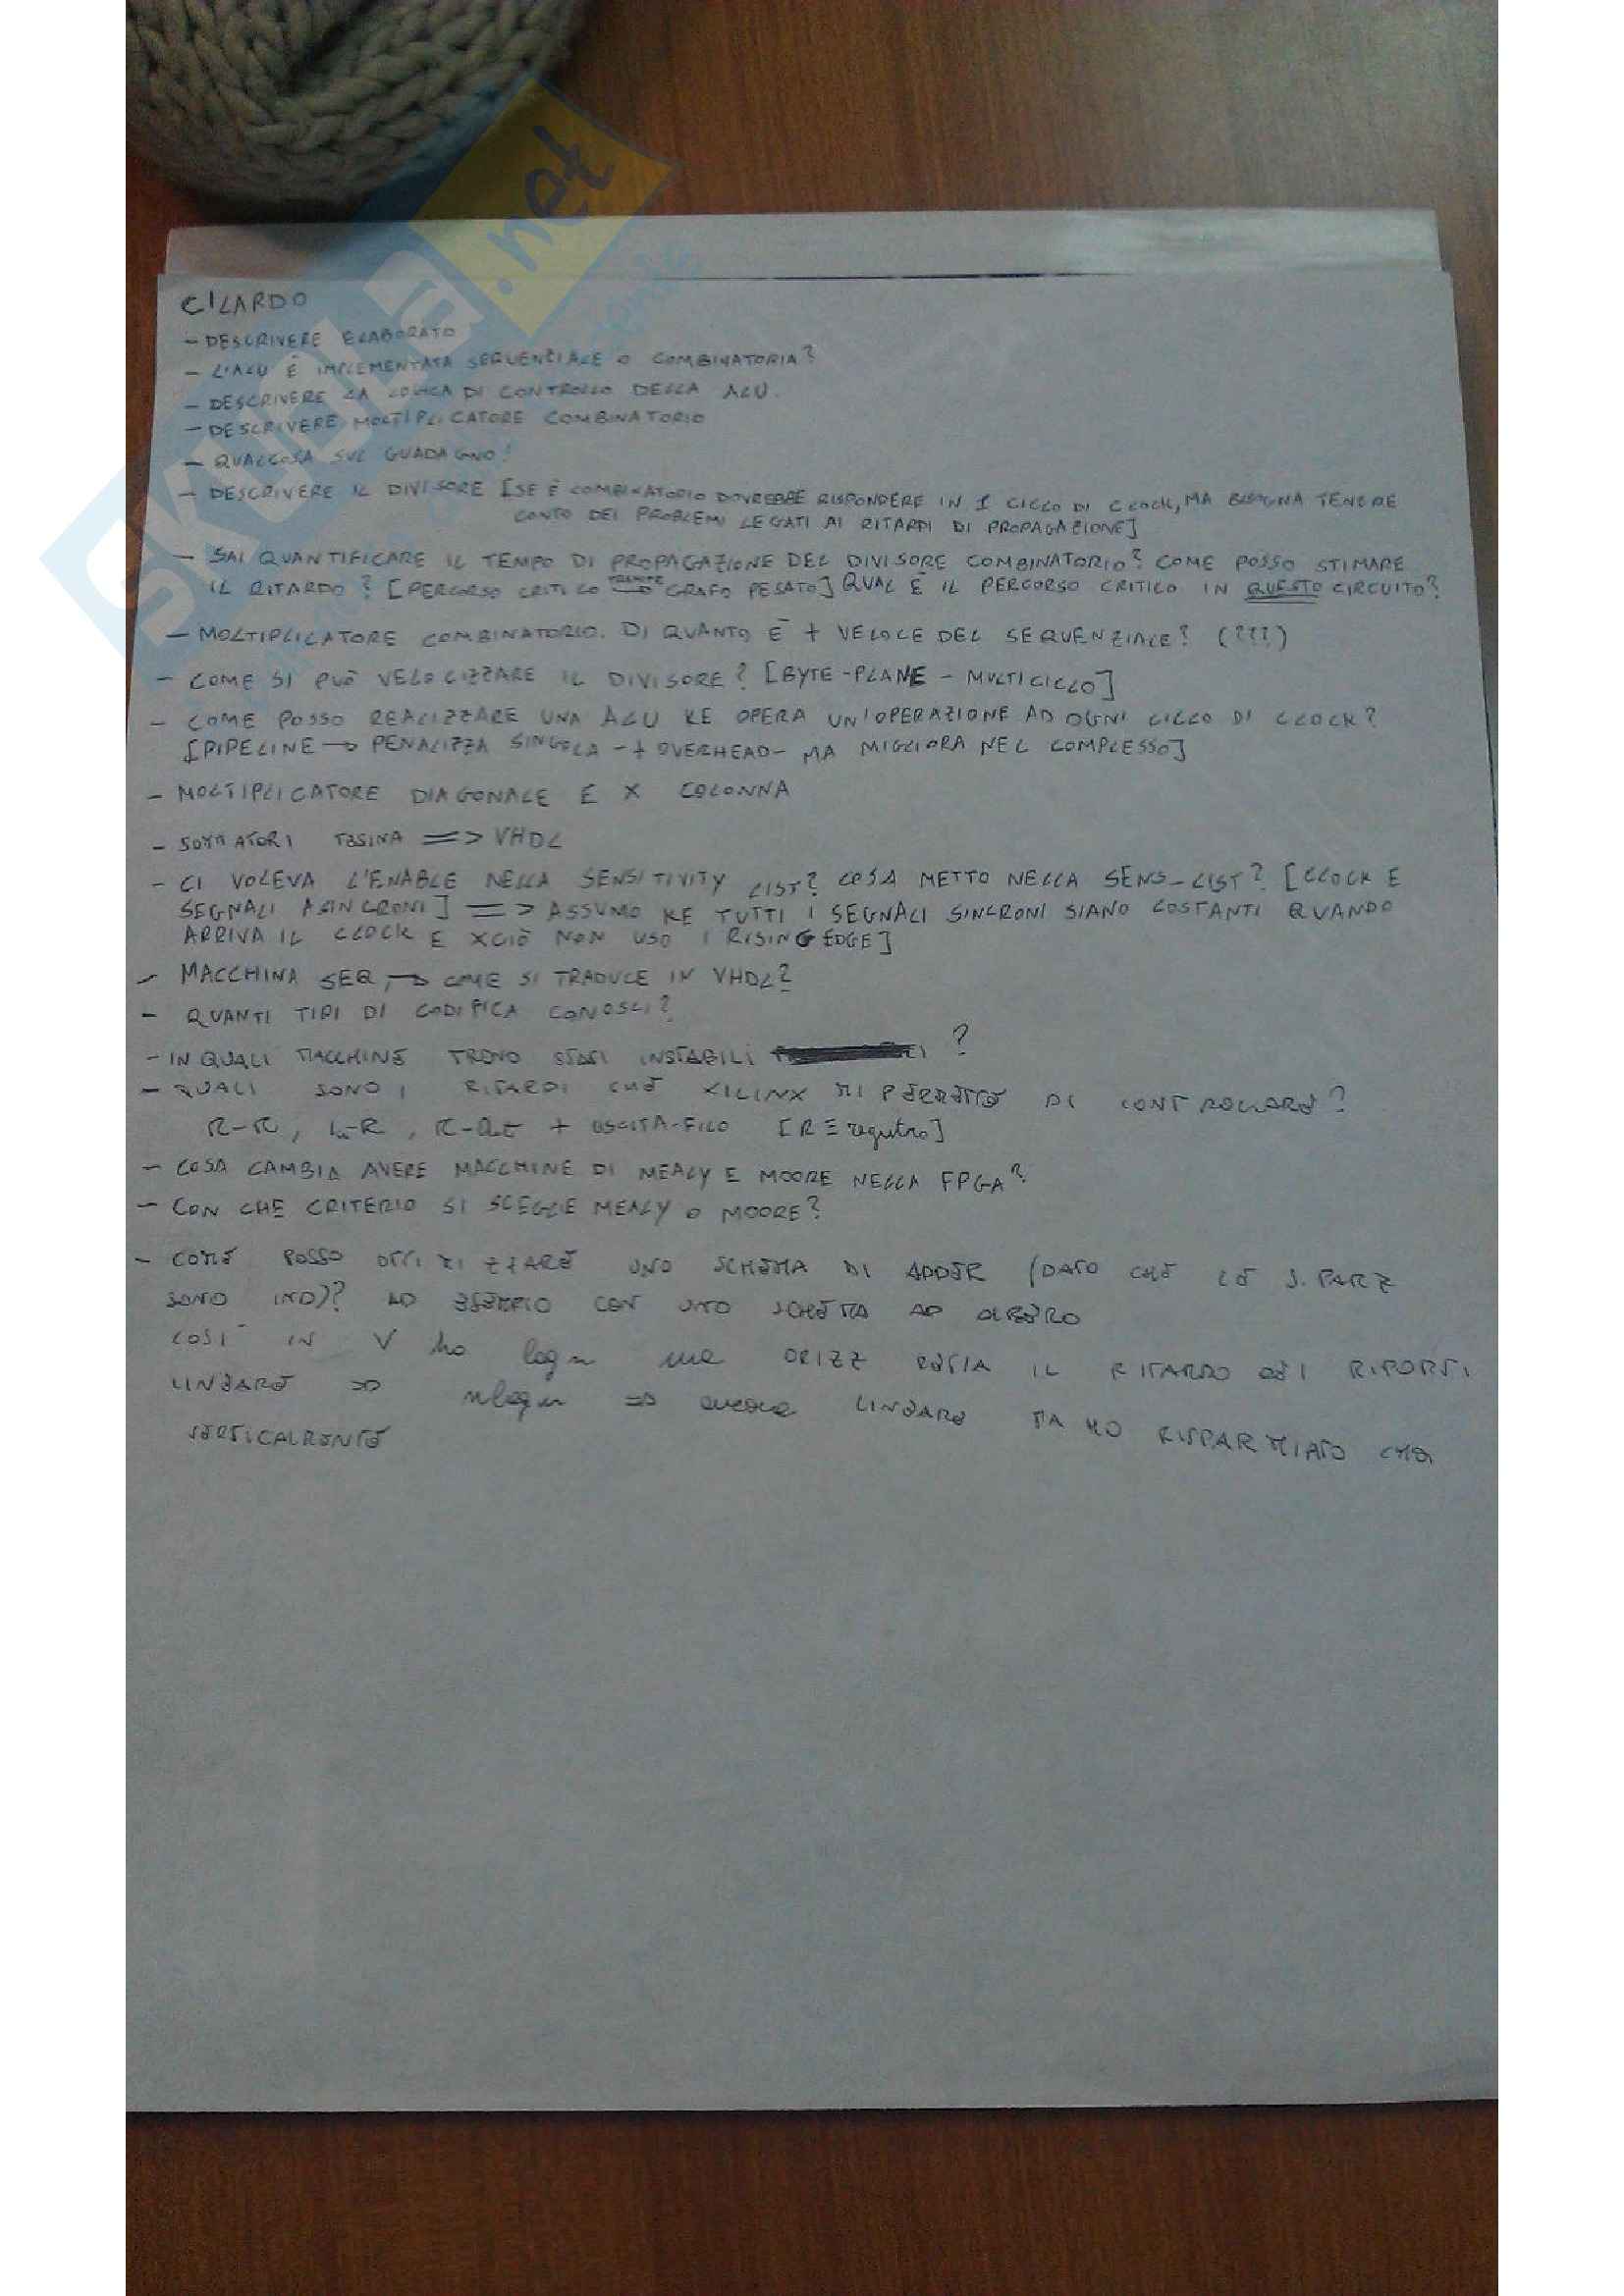 CILARDO
- DESCRIVERE ELABORATO
- L'ALU È IMPLEMENTATA SEQUENZIALE O COMBINATORIA?
- DESCRIVERE LA LOGICA DI CONTROLLO DELLA ALU.
- DESCRIVERE MOLTIPLICATORE COMBINATORIO
- QUALCOSA SUL GUADAGNO!
- DESCRIVERE IL DIVISORE [SE È COMBINATORIO DOVREBBE RISPONDERE IN 1 CICLO DI CLOCK, MA BISOGNA TENERE
CONTO DEI PROBLEMI LEGATI AI RITARDI DI PROPAGAZIONE]
- SAI QUANTIFICARE IL TEMPO DI PROPAGAZIONE DEL DIVISORE COMBINATORIO? COME POSSO STIMARE
IL RITARDO? [PERCORSO CRITICO TRAMITE → GRAFO PESATO] QUAL È IL PERCORSO CRITICO IN QUESTO CIRCUITO?
- MOLTIPLICATORE COMBINATORIO. DI QUANTO È + VELOCE DEL SEQUENZIALE? (???)
- COME SI PUÒ VELOCIZZARE IL DIVISORE? [BYTE-PLANE - MULTICICLO]
- COME POSSO REALIZZARE UNA ALU KE OPERA UN'OPERAZIONE AD OGNI CICLO DI CLOCK?
[PIPELINE → PENALIZZA SINGOLA -+ OVERHEAD- MA MIGLIORA NEL COMPLESSO]
- MOLTIPLICATORE DIAGONALE E X COLONNA
- SOMMATORI TESINA => VHDL
- CI VOLEVA L'ENABLE NELLA SENSITIVITY LIST? COSA METTO NELLA SENS-LIST? [CLOCK E
SEGNALI ASINCRONI] => ASSUMO KE TUTTI I SEGNALI SINCRONI SIANO COSTANTI QUANDO
ARRIVA IL CLOCK E XCIÒ NON USO I RISING EDGE]
- MACCHINA SEQ, → COME SI TRADUCE IN VHDL?
- QUANTI TIPI DI CODIFICA CONOSCI?
- IN QUALI MACCHINE TROVO STATI INSTABILI ?
- QUALI SONO I RITARDI CHE XILINX MI PERMETTE DI CONTROLLARE?
R-R, In-R, R-Out + USCITA-FILO [R ≡ registro]
- COSA CAMBIA AVERE MACCHINE DI MEALY E MOORE NELLA FPGA?
- CON CHE CRITERIO SI SCEGLIE MEALY O MOORE?
- COME POSSO OTTIMIZZARE UNO SCHEMA DI ADDER (DATO CHE LE S. PARZ
SONO IND)? AD ESEMPIO CON UNO SCHEMA AD ALBERO
COSÌ IN V ho log n ma ORIZZ RESTA IL RITARDO DEI RIPORTI
LINEARE => nlogn => ancora LINEARE MA HO RISPARMIATO
VERTICALMENTE
SKUOLA.net